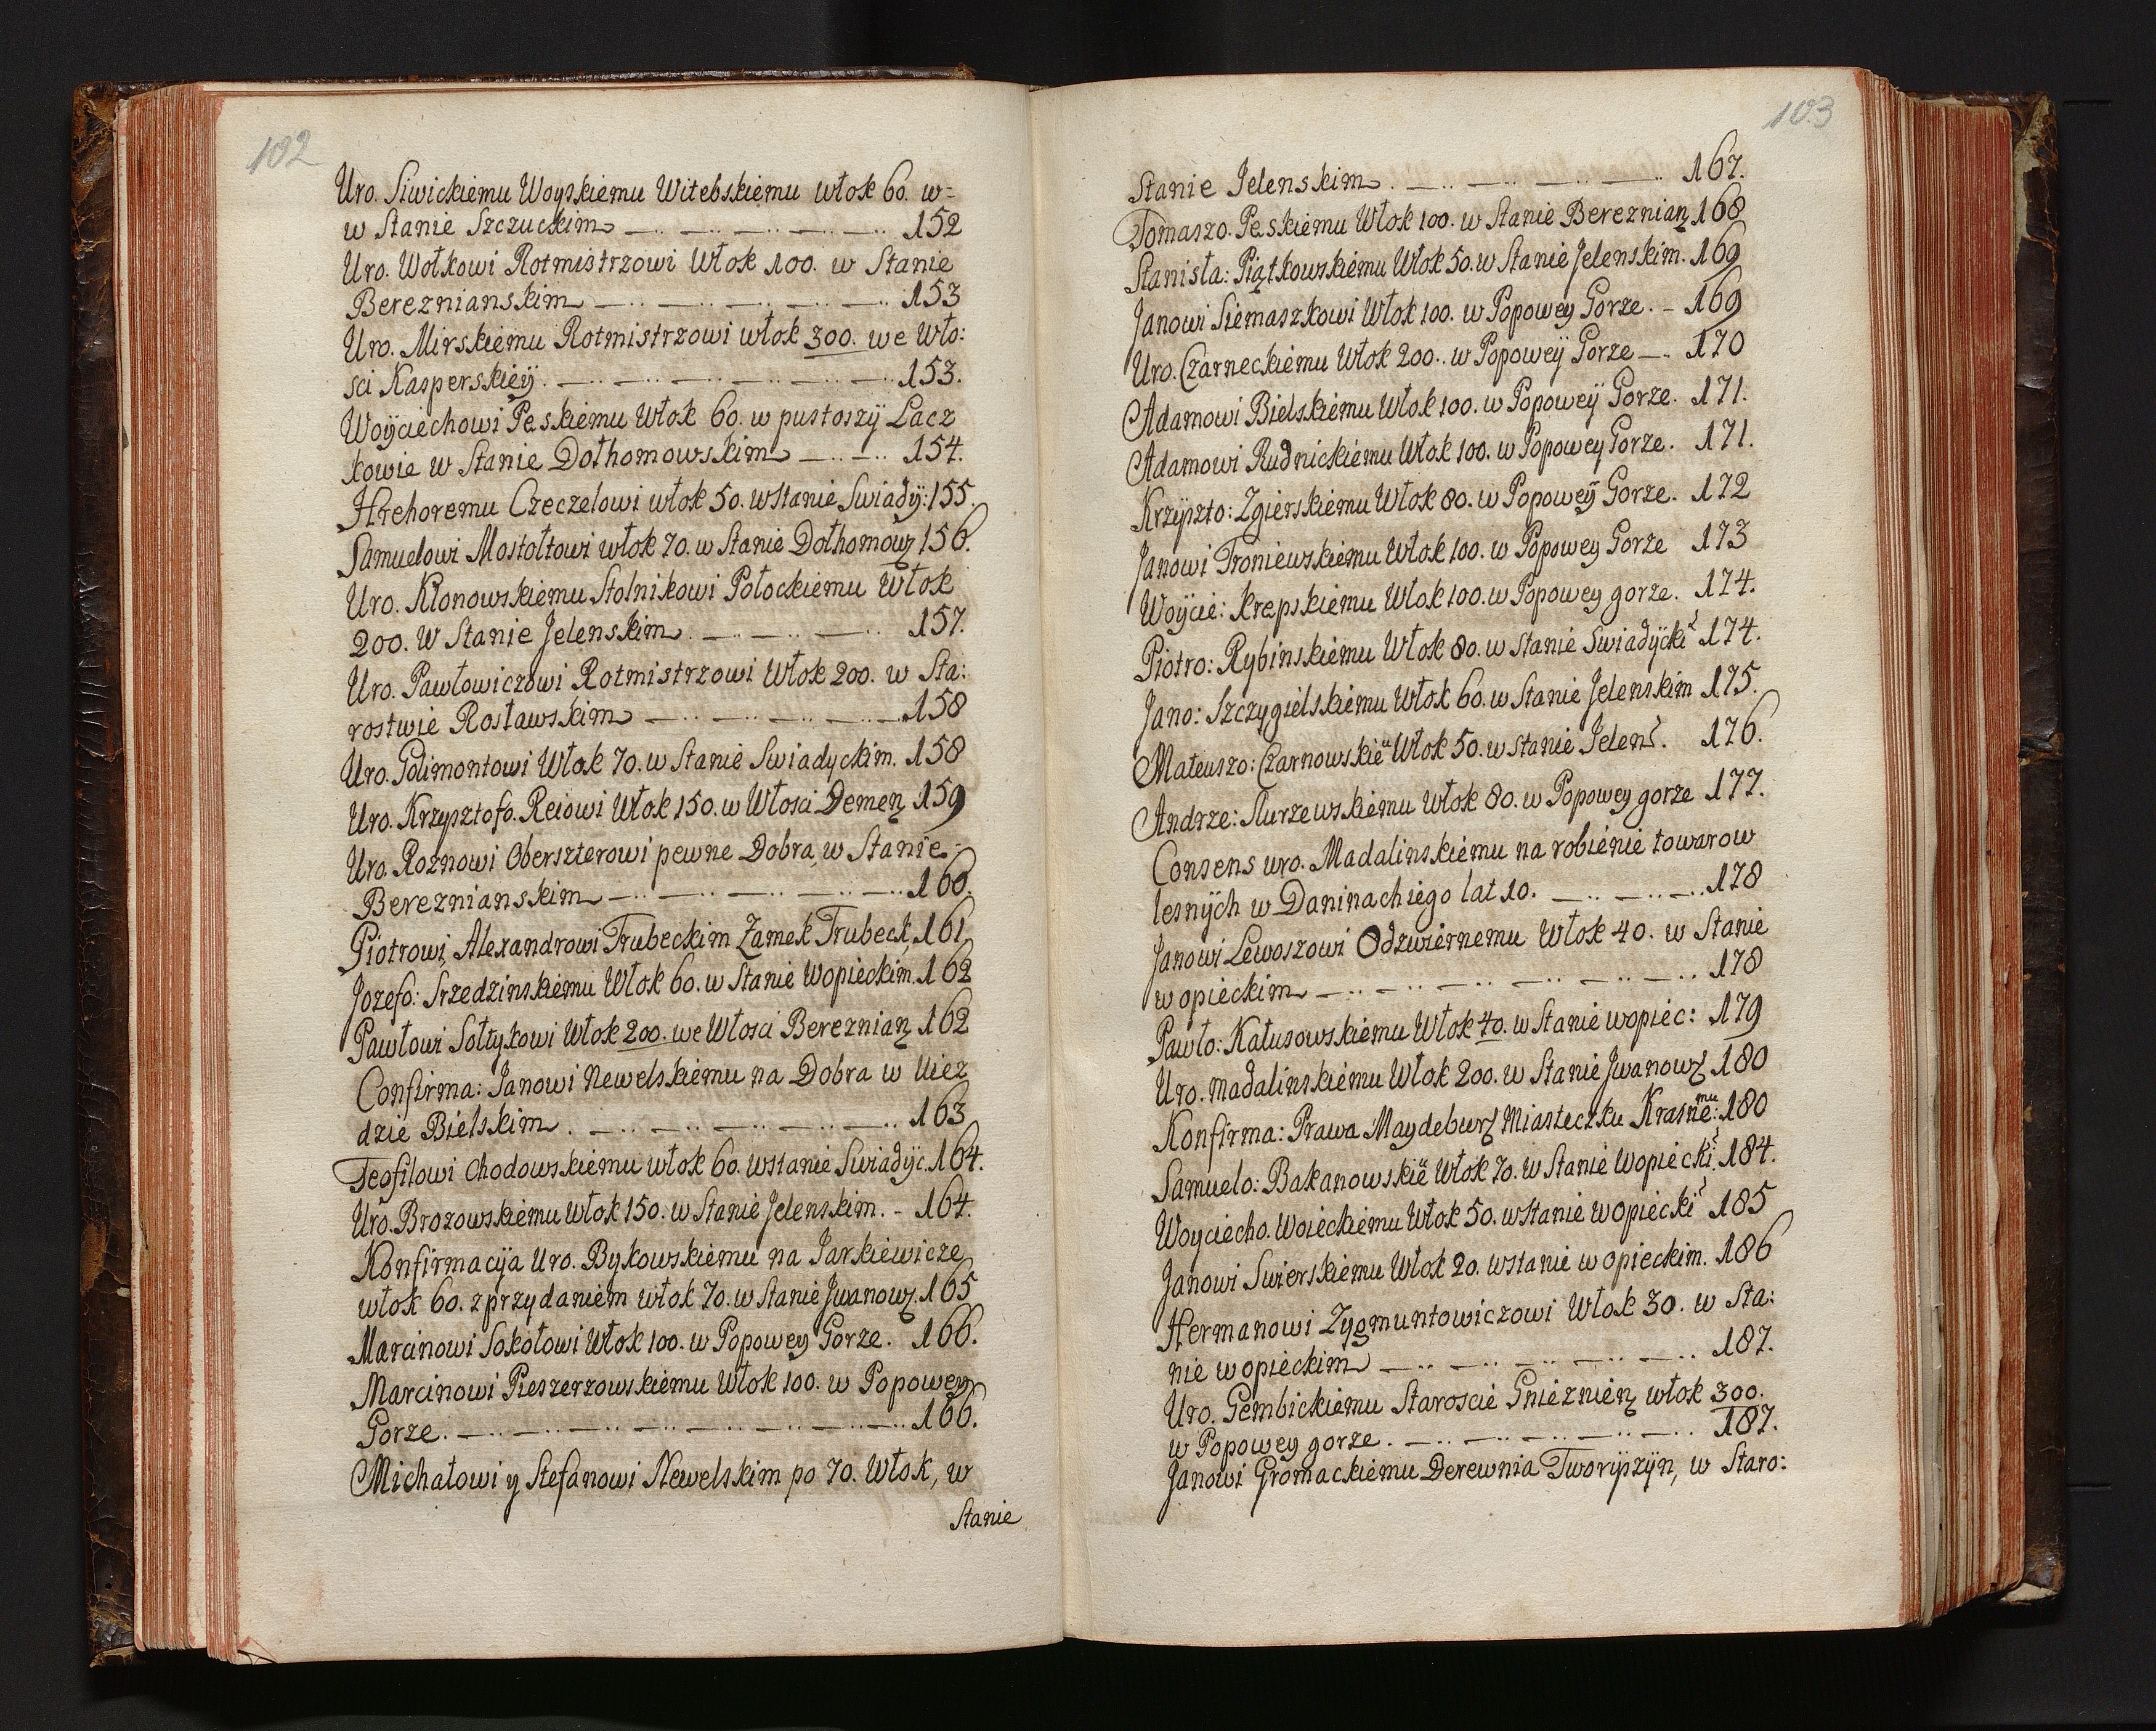 102
Uro. Siwickiemu Woyskiemu Witebskiemu włok 60. w=
w Stanie Szczuckim 152
Uro. Wołkowi Rotmistrzowi Włok 100. w Stanie
Bereznianskim 153
Uro. Mirskiemu Rotmistrzowi włok 300. we Wło:
sci Kasperskieÿ. 153.
Woÿciechowi Peskiemu Włok 60. w pustoszÿ Lacz
kowie w Stanie Dołhomowskim 154.
Hrehoremu Czeczelowi włok 50. w Stanie Swiadÿ: 155.
Samuelowi Mostołtowi włok 70. w Stanie Dołhomowz 156.
Uro. Kłonowskiemu Stolnikowi Połockiemu Włok
200. W Stanie Jelenskim. 157.
Uro. Pawłowiczowi Rotmistrzowi Włok 200. w Sta:
rostwie Rosławskim 158
Uro. Golimontowi Włok 70. w Stanie Swiadyckim. 158
Uro. Krzysztofo. Reiowi Włok 150. w Włosci Demenz 159
Uro. Roznowi Oberszterowi pewne Dobra w Stanie
Bereznianskim 160.
Piotrowi, Alexandrowi Trubeckim Zamek Trubeck 161
Jozefo: Srzedzinskiemu Włok 60. w Stanie Wopieckim. 162
Pawłowi Sołtykowi Włok 200. we Włosci Berezniaz 162
Confirma: Janowi Newelskiemu na Dobra w Uiez
dzie Bielskim. 163
Teofilowi Chodowskiemu włok 60. w stanie Swiadÿc. 164.
Uro. Brozowskiemu Włok 150. w Stanie Jelenskim. - 164.
Konfirmacÿa Uro. Bykowskiemu na Jarkiewicze
włok 60. z przydaniem włok 70. w Stanie Jwanowz. 165
Marcinowi Sokołowi Włok 100. w Popowey Gorze. 166.
Marcinowi Pieszerzowskiemu Włok 100. w Popowey
Gorze. 166.
Michałowi y Stefanowi Newelskim po 70. Włok, w
Stanie
103
Stanie Jelenskim. 167.
Tomaszo. Peskiemu Włok 100. w Stanie Berezniaz 168
Stanisła: Piątkowskiemu Włok 50. w Stanie Jelenskim. 169
Janowi Siemaszkowi Włok 100. w Popowey Gorze. - 169
Uro. Czarneckiemu Włok 200. w Popoweÿ Gorze 170
Adamowi Bielskiemu Włok 100. w Popoweÿ Gorze. 171.
Adamowi Rudnickiemu Włok 100. w Popowey Gorze. 171.
Krzÿszto: Zgierskiemu Włok 80. w Popoweÿ Gorze. 172
Janowi Troniewskiemu Włok 100. w Popowey Gorze 173
Woÿcie: Krepskiemu Włok 100. w Popowey gorze. 174.
Piotro: Rybinskiemu Włok 80. w Stanie Swiadÿcki 174.
Jano: Szczygielskiemu Włok 60. w Stanie Jelenskim 175.
Mateuszo: Czarnowskieu Włok 50. w Stanie Jelens. 176.
Andrze: Slurzewskiemu Włok 80. w Popowey gorze 177.
Consens uro. Madalinskiemu na robienie towarow
lesnÿch w Daninach iego lat 10. 178
Janowi Lewoszowi Odzwiernemu Włok 40. w Stanie
wopieckim 178
Pawło: Kałusowskiemu Włok 40. w Stanie wopiec: 179
Uro. Madalinskiemu Włok 200. w Stanie Jwanowz 180
Konfirma: Prawa Maydeburz Miasteczku Krasnemu: 180
Samuelo: Bakanowskieu Włok 70. w Stanie Wopiecki. 184.
Woyciecho. Woieckiemu Włok 50. w Stanie wopiecki 185
Janowi Swierskiemu Włok 20. w stanie wopieckim. 186
Hermanowi Zÿgmuntowiczowi Włok 30. w Sta:
nie wopieckim 187.
Uro. Gembickiemu Staroscie Gnieznienz włok 300.
w Popowey gorze. 187.
Janowi Gromackiemu Derewnia Tworÿszÿn, w Staro: